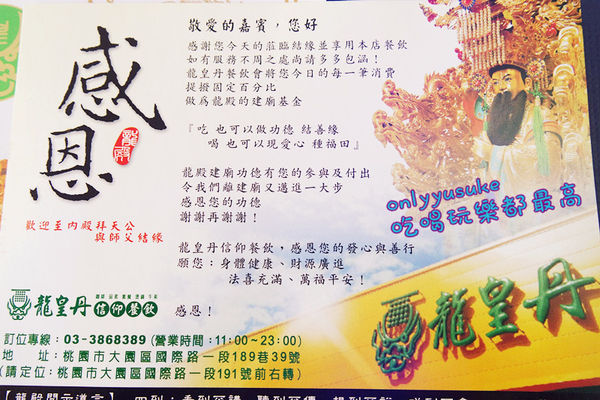 感恩
龍殿
歡迎至內殿拜天公
與師父結緣
敬愛的嘉賓，您好
感謝您今天的蒞臨結緣並享用本店餐飲
如有服務不周之處尚請多多包涵！
龍皇丹餐飲會將您今日的每一筆消費
提撥固定百分比
做爲龍殿的建廟基金
『吃 也可以做功德 結善緣
喝 也可以現愛心 種福田』
龍殿建廟功德有您的參與及付出
令我們離建廟又邁進一大步
感恩您的功德
謝謝再謝謝！
龍皇丹信仰餐飲，感恩您的發心與善行
願您：身體健康、財源廣進
法喜充滿、萬福平安！
感恩！
onlyyusuke
吃喝玩樂都最高
龍皇丹
信仰餐飲
龍皇丹
訂位專線：03-3868389(營業時間：11:00~23:00)
地 址：桃園市大園區國際路一段189巷39號
(請定位：桃園市大園區國際路一段191號前右轉)